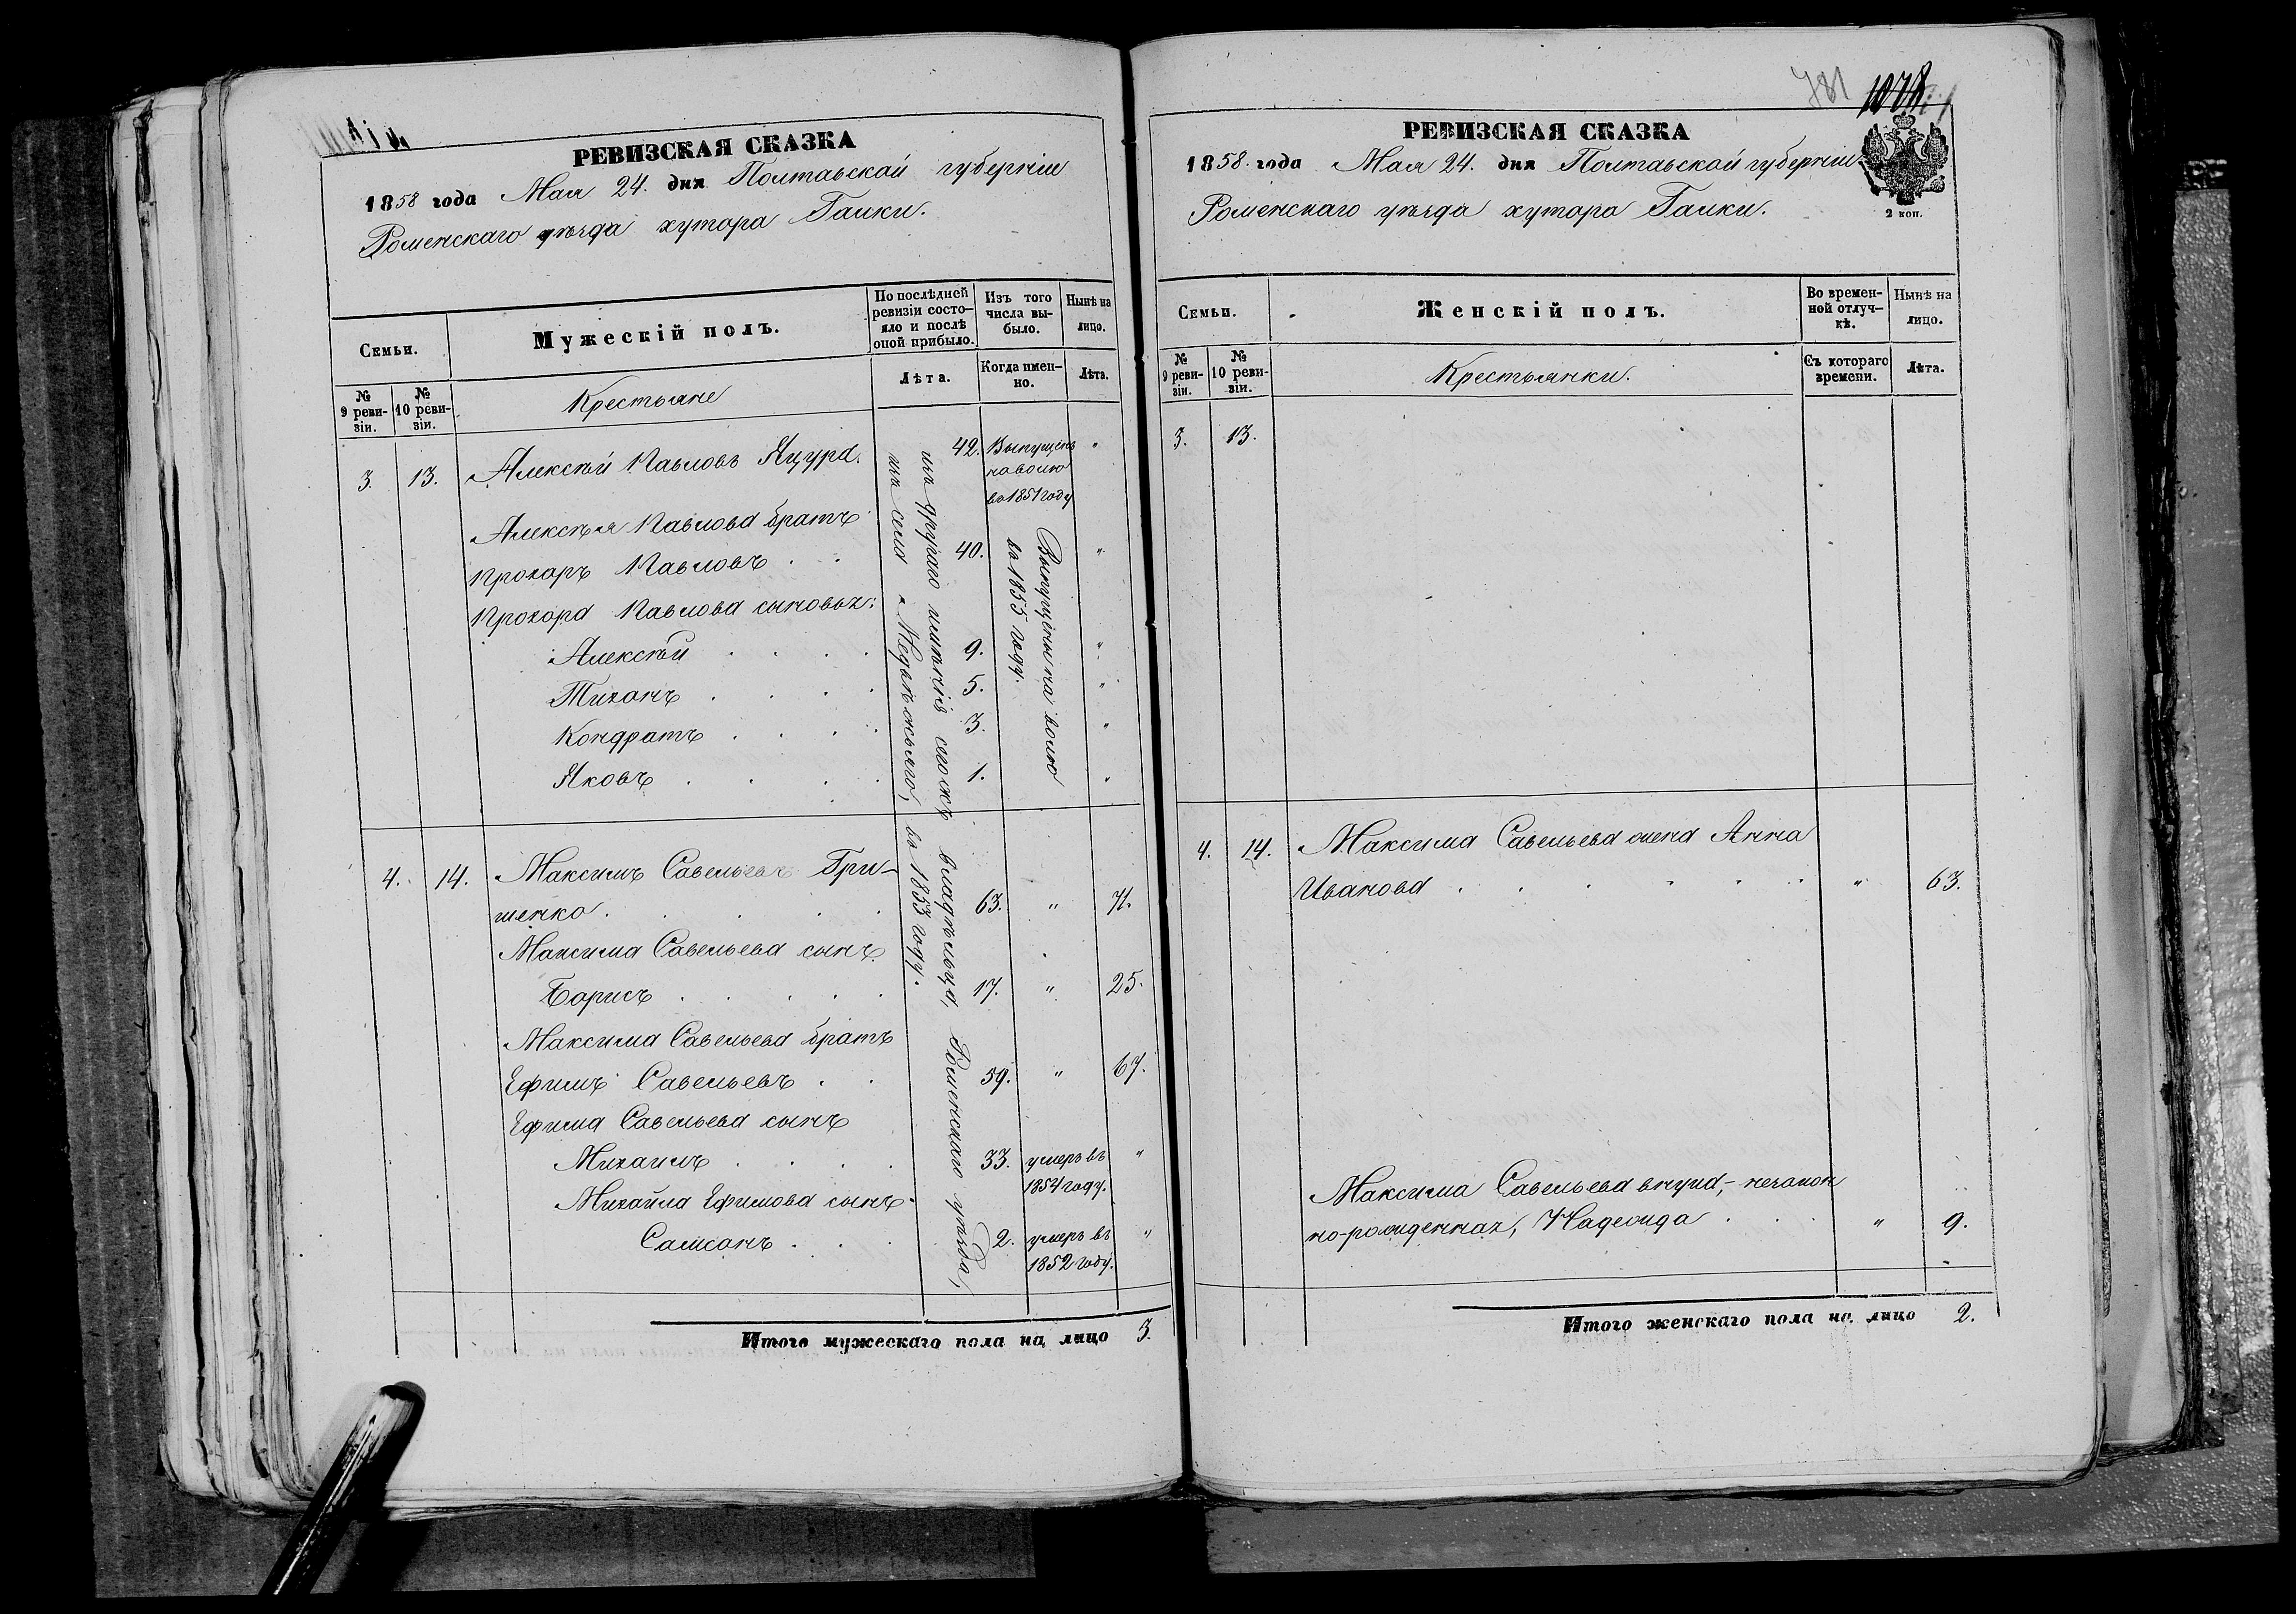 РЕВИЗСКАЯ СКАЗКА
1858 года Мая 24. дня Полтавской губерніи
Роменскаго уѣзда хутора Галки.
Семьи.
Мужескій полъ.
По послѣдней ревизіи состояло и послѣ оной прибыло.
Изъ того числа выбыло.
Нынѣ на лицо.
№ 9 ревизіи.
№ 10 ревизіи.
Крестьяне
Лѣта.
Когда именно.
Лѣта.
3. 13. Алексѣй Павловъ Яцура. 42. Выпущенъ "
на волю
въ 1851 году
Алексѣя Павлова братъ
Прохоръ Павловъ . . 40. "
Прохора Павлова сыновья:
Алексѣй . . . . 9. "
Тихонъ . . . . 5. "
Кондратъ . . . . 3. "
Яковъ . . . . 1. "
Выпущены на волю
въ 1855 году.
изъ другаго имѣнія сегожъ владѣльца, Роменскаго уѣзда,
изъ села Медвѣжьяго, въ 1853 году.
4. 14. Максимъ Савельевъ Гри-
шенко . . . . . 63. " 71.
Максима Савельева сынъ
Борисъ . . . . . 17. " 25.
Максима Савельева братъ
Ефимъ Савельевъ . . 59. " 67.
Ефима Савельева сынъ
Михаилъ . . . . 33. умеръ въ "
1854 году.
Михайла Ефимова сынъ
Самсонъ . . . 2. умеръ въ "
1852 году.
Итого мужескаго пола на лицо 3.
781
1078
РЕВИЗСКАЯ СКАЗКА
1858 года Мая 24. дня Полтавской губерніи
Роменскаго уѣзда хутора Галки.
2 коп.
Семьи.
Женскій полъ.
Во временной отлучкѣ.
Нынѣ на лицо.
№ 9 ревизіи.
№ 10 ревизіи.
Крестьянки.
Съ котораго времени.
Лѣта.
3. 13.
4. 14. Максима Савельева жена Анна
Иванова . . . . . . " 63.
Максима Савельева внука,- незакон
но-рожденная, Надежда . . . " 9.
Итого женскаго пола на лицо 2.